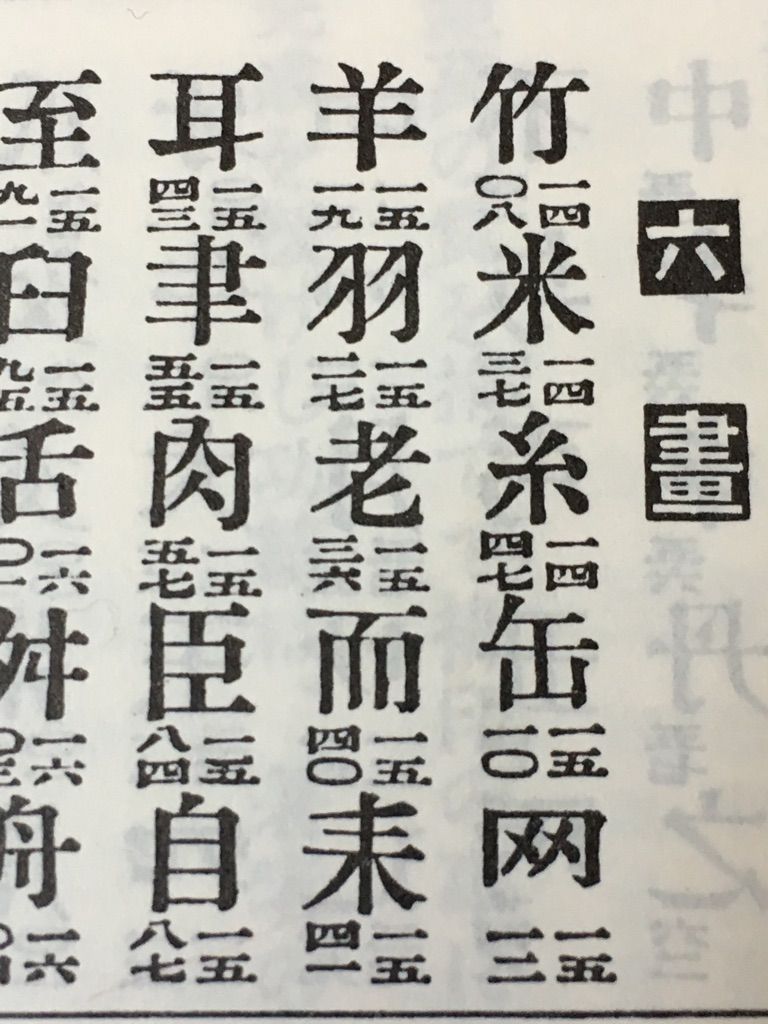 六畫
竹一四〇八米一四三七糸一四四七缶一五一〇网一五一二
羊一五一九羽一五二七老一五三六而一五四〇耒一五四一
耳一五四三聿一五五五肉一五五七臣一五八四自一五八七
至一五九一臼一五九五舌一六〇一舛一六〇三舟一六〇四